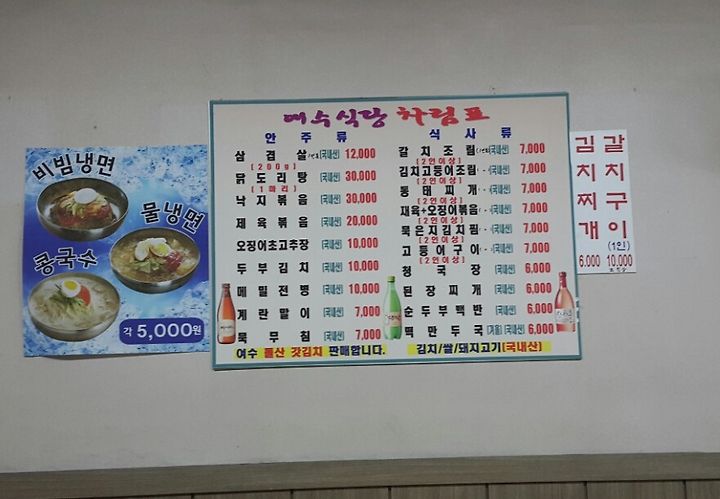 비빔냉면
물냉면
콩국수
각 5,000원
여수식당 차림표
안주류
삼겹살 (국내산) 12,000
(200g)
닭도리탕 (국내산) 30,000
(1마리)
낙지볶음 (국내산) 30,000
제육볶음 (국내산) 20,000
오징어초고추장 (국내산) 10,000
두부김치 (국내산) 10,000
메밀전병 (국내산) 10,000
계란말이 (국내산) 7,000
묵무침 (국내산) 7,000
여수 돌산 갓김치 판매합니다.
식사류
갈치조림 (국내산) 7,000
(2인이상)
김치고등어조림 7,000
(2인이상)
동태찌개 7,000
(2인이상)
재육+오징어볶음 7,000
(2인이상)
묵은지김치찜 7,000
(2인이상)
고등어구이 7,000
(2인이상)
청국장 (국내산) 6,000
된장찌개 (국내산) 6,000
순두부백반 (국내산) 6,000
떡만두국 (겨울) (국내산) 6,000
김치/쌀/돼지고기(국내산)
김치찌개
6,000
갈치구이
(1인)
10,000